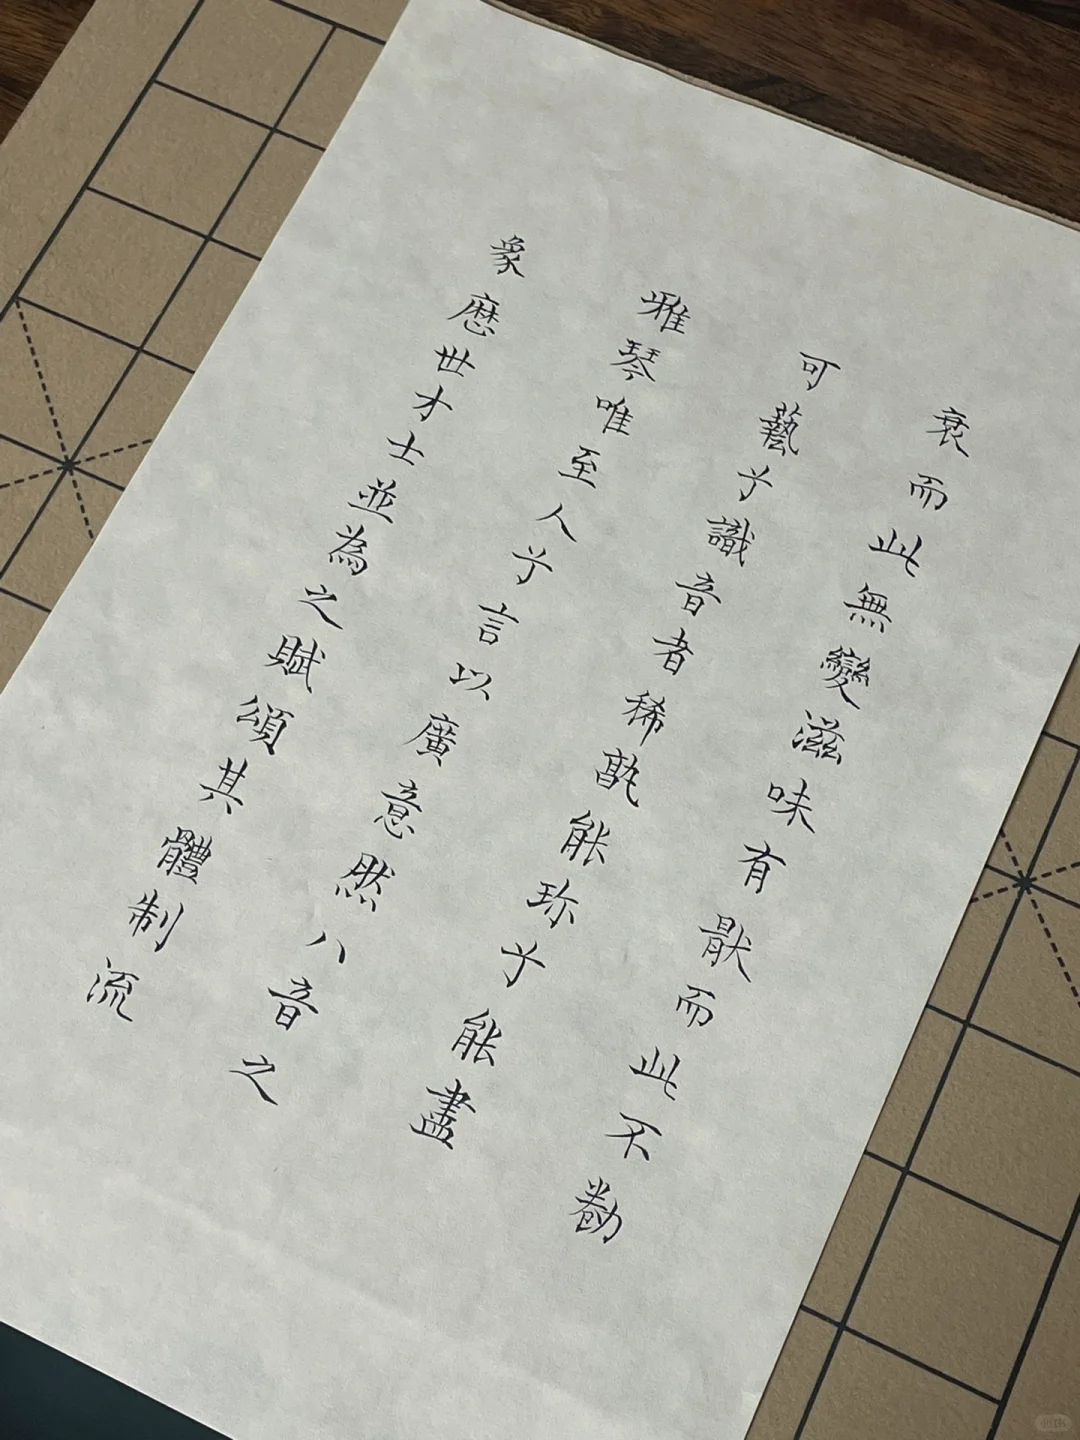 衰而此無變滋味有猒而此不勌
可藝兮識音者稀孰能珎兮能盡
雅琴唯至人兮言以廣意然八音之
象歷世才士並為之賦頌其體制流